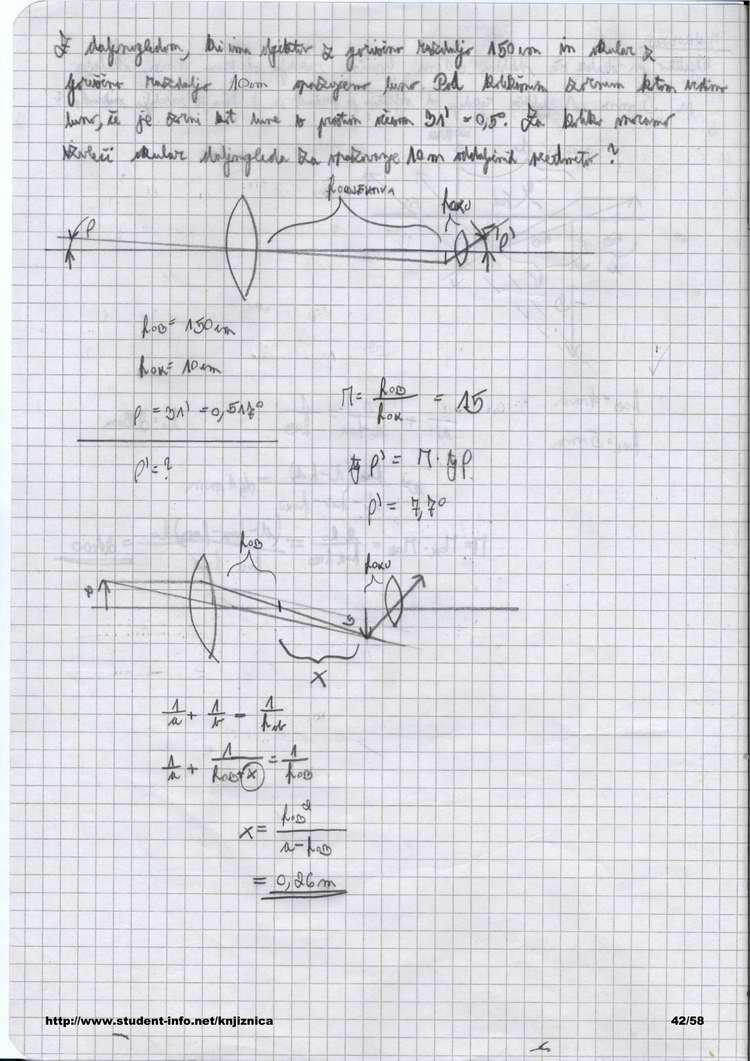 Z daljnogledom, ki ima objektiv z goriščno razdaljo 150 cm in okular z
goriščno razdaljo 10 cm opazujemo luno. Pod kolikšnim zornim kotom vidimo
luno, če je zorni kot lune s prostim očesom 31' = 0,5°. Za koliko moramo
izvleči okular daljnogleda za opazovanje 10 m oddaljenih predmetov?
fOBJEKTIVA
fOKU
φ
φ'
fOB = 150 cm
fOK = 10 cm
φ = 31' = 0,517°
φ' = ?
M = fOB / fOK = 15
tg φ' = M · tg φ
φ' = 7,7°
fOB
fOKU
x
1/a + 1/b = 1/fob
1/a + 1/(fOB+x) = 1/fOB
x = fOB² / (a-fOB)
= 0,26 m
http://www.student-info.net/knjiznica 42/58